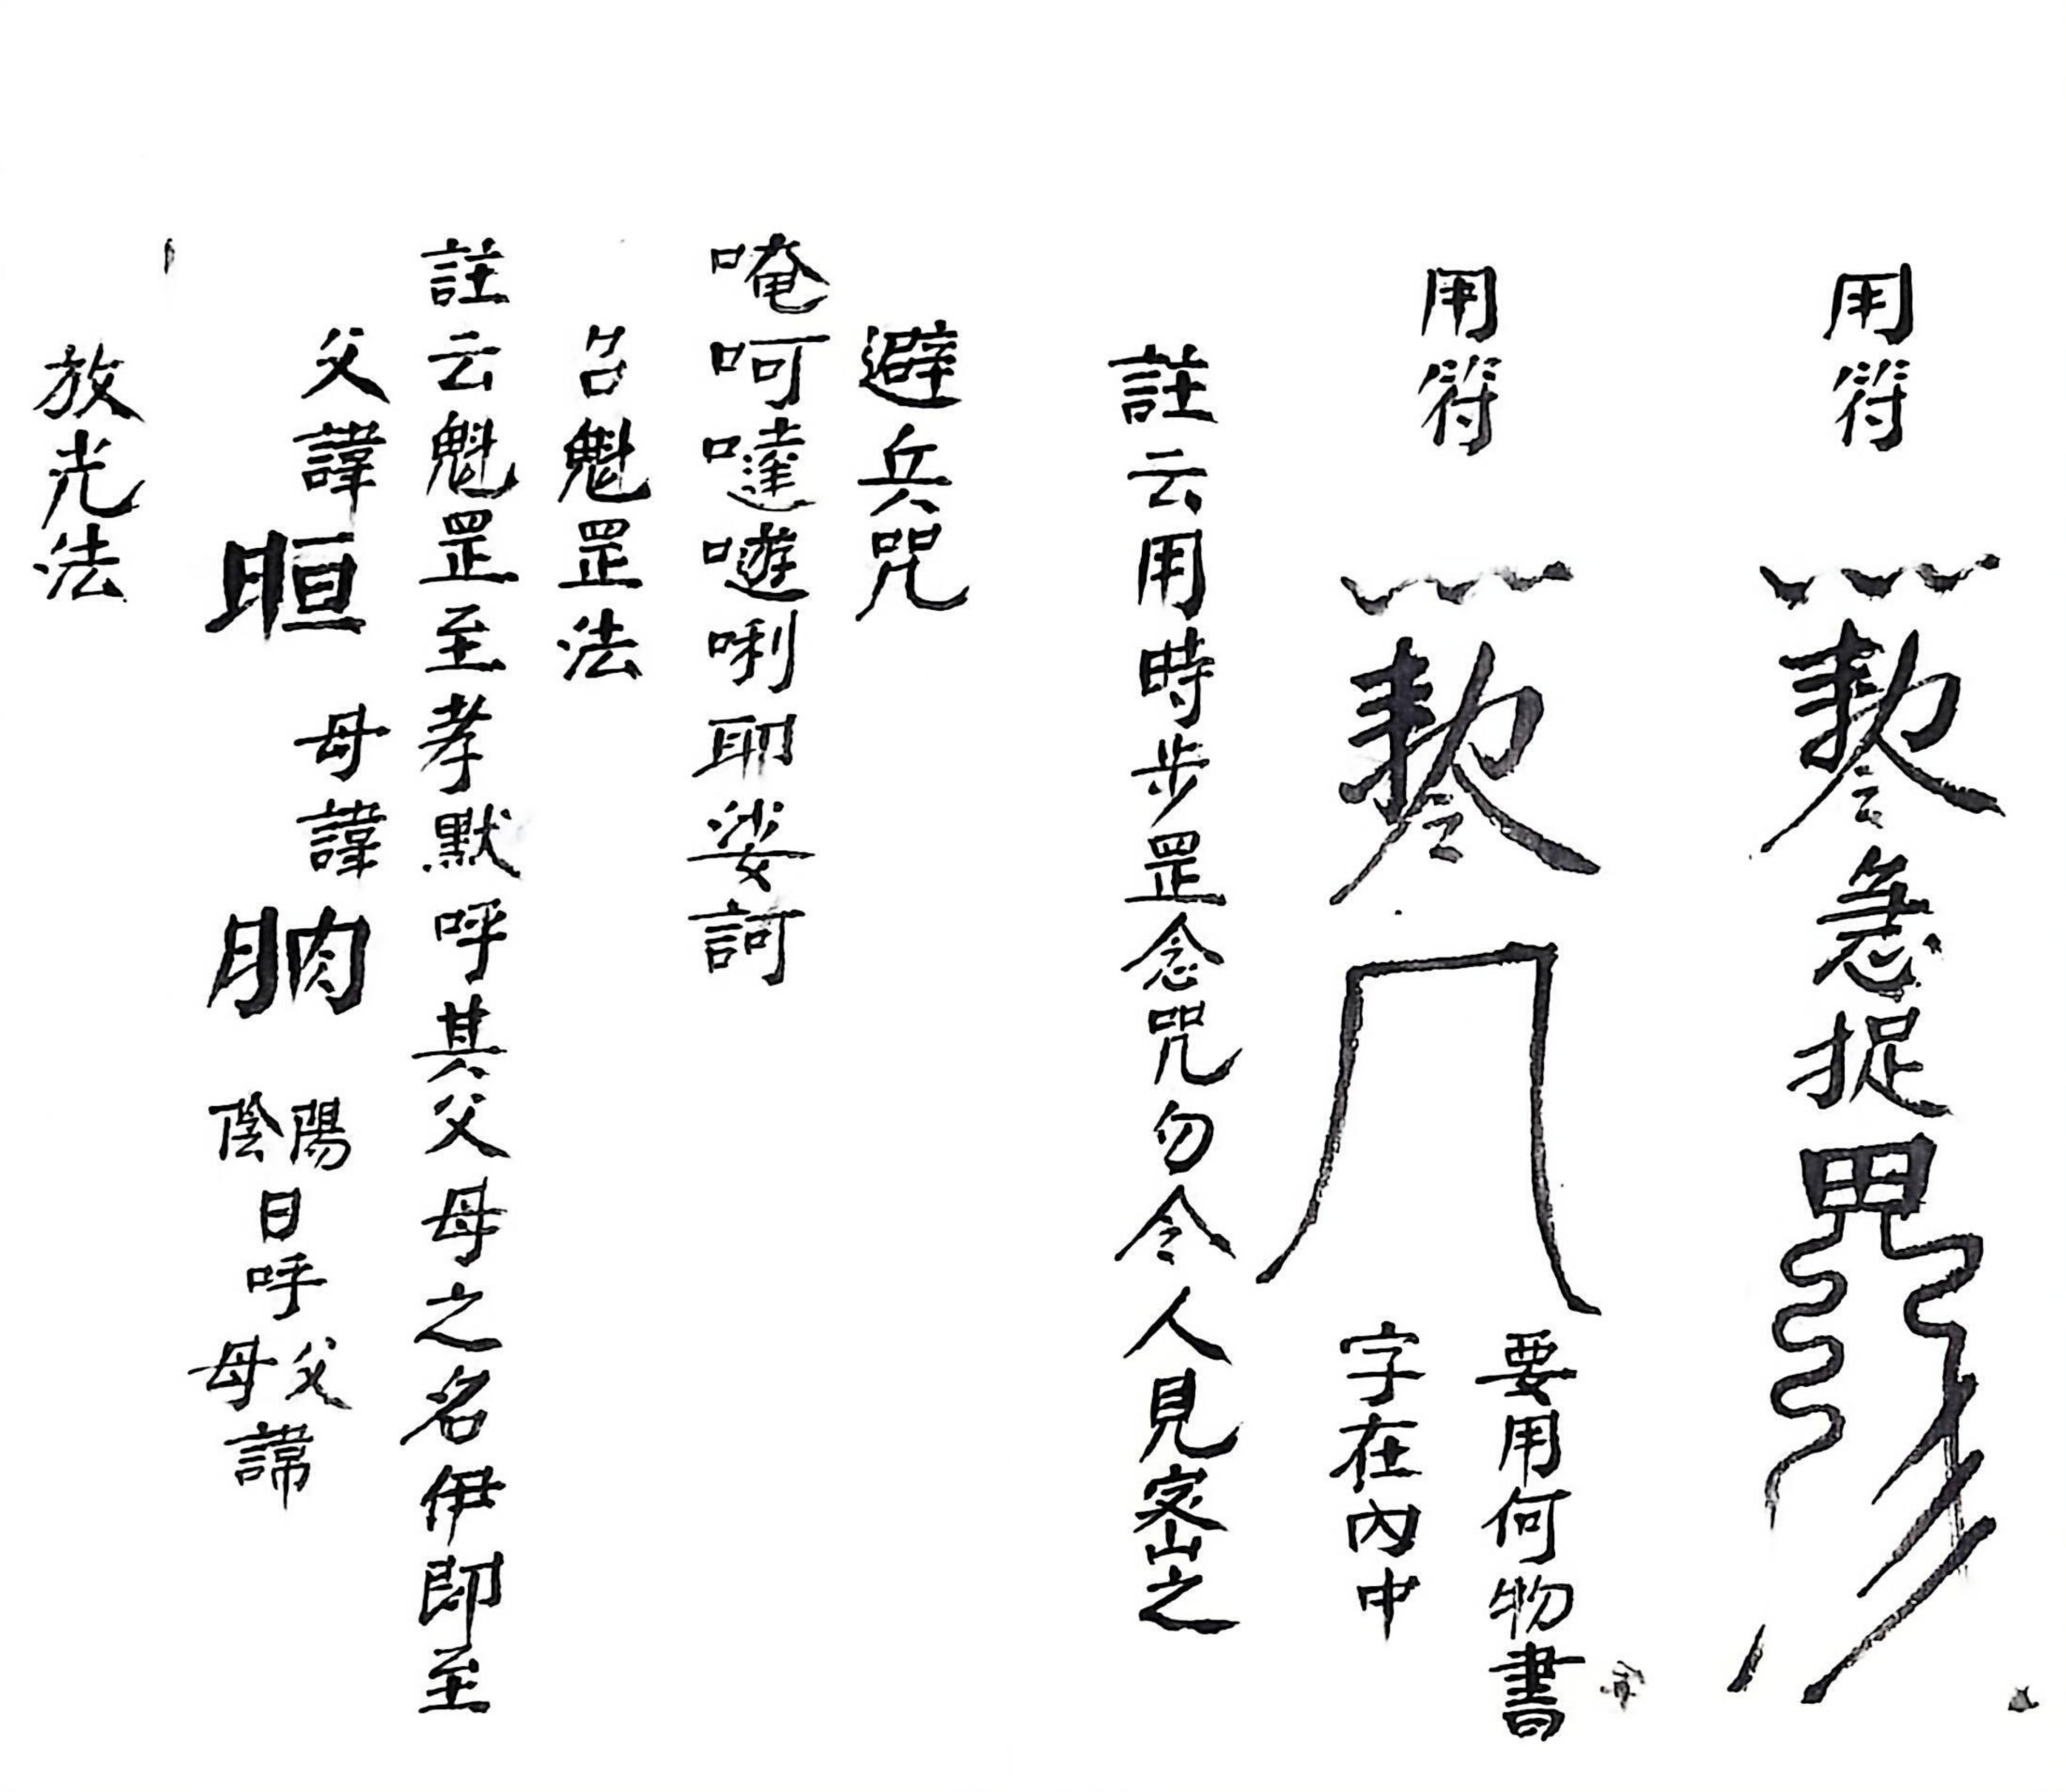 用符
急捉
用符
要用何物書
字在內中
註云用時步罡念咒勿令人見密之
避兵咒
唵呵噠𠼐唎耶娑訶
召魁罡法
註云魁罡至孝默呼其父母之名伊即至
父諱 𣆛 母諱 肭 陽陰日呼父母諱
放光法